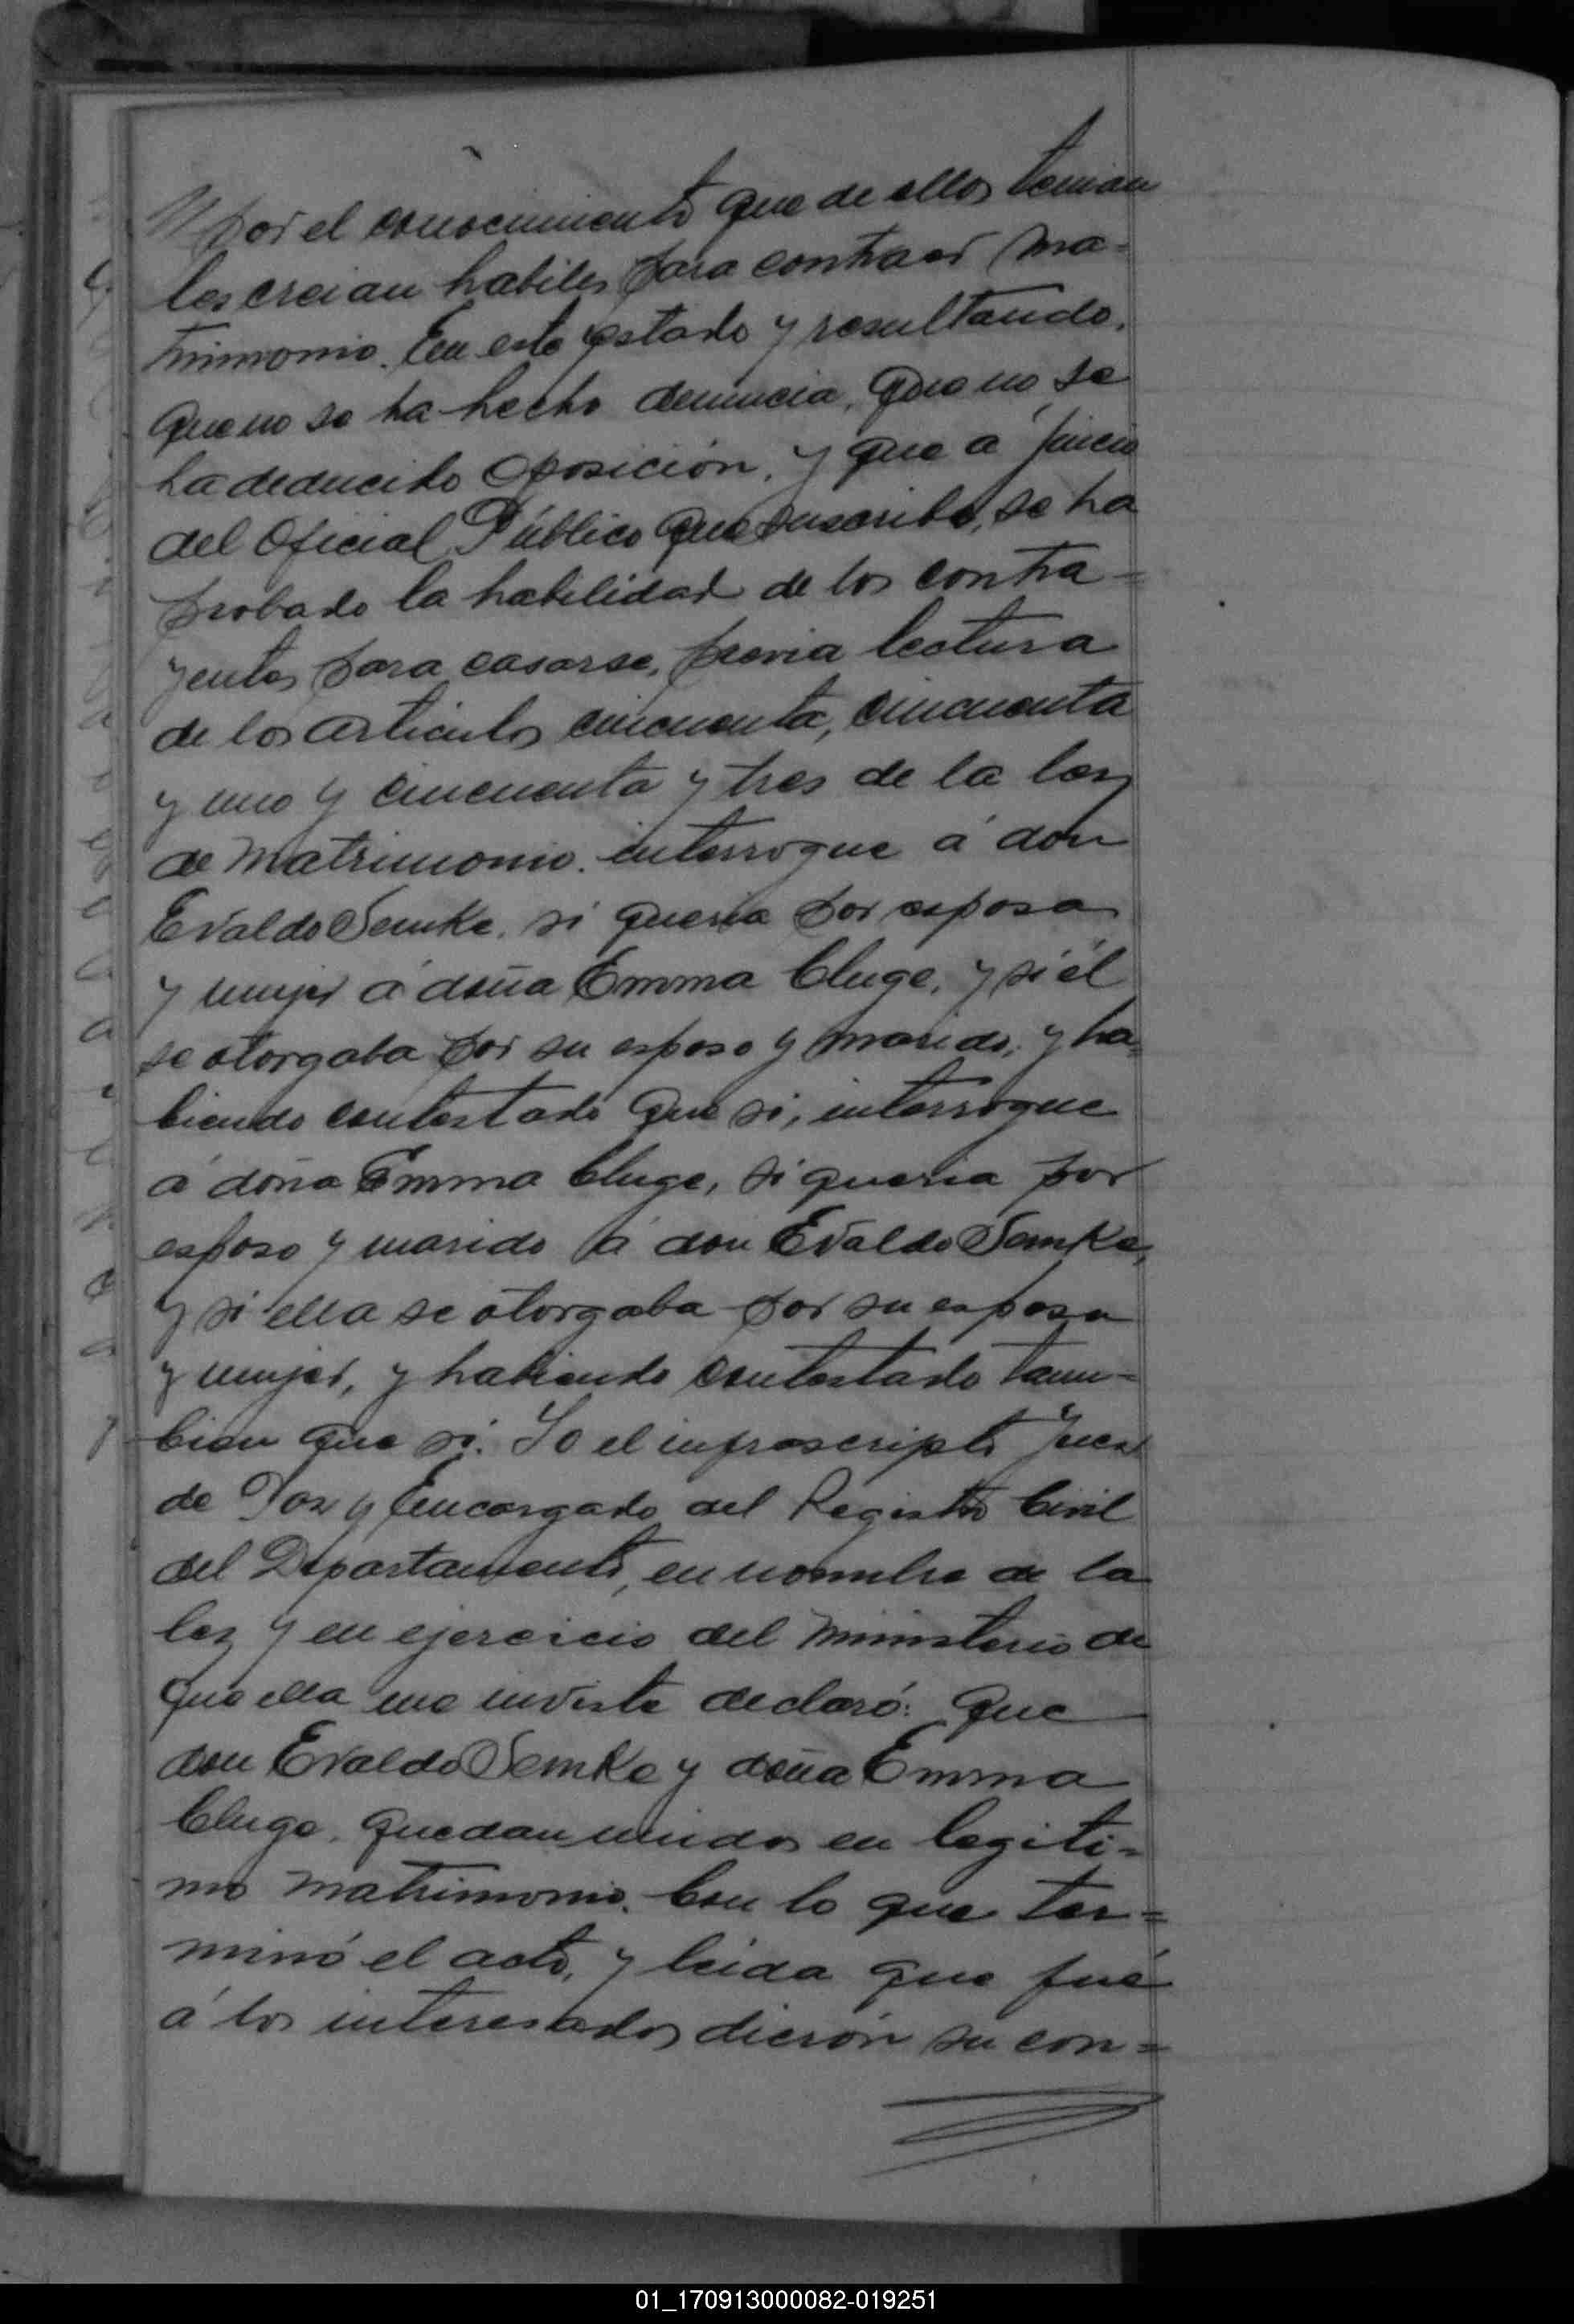 por el conocimiento que de ellos tenian
les creian habiles para contraer ma=
trimonio. En este estado y resultando,
que no se ha hecho denuncia, que no se
ha deducido oposición, y que a juicio
del Oficial Público que suscribe, se ha
probado la habilidad de los contra=
yentes para casarse, previa lectura
de los articulos cincuenta, cincuenta
y uno y cincuenta y tres de la ley
de Matrimonio. interrogue á don
Evaldo Semke, si queria por esposa
y mujer á doña Emma Cluge, y si él
se otorgaba por su esposo y marido, y ha=
biendo contestado que si, interrogue
á doña Emma Cluge, si queria por
esposo y marido á don Evaldo Semke,
y si ella se otorgaba por su esposa
y mujer, y habiendo contestado tam=
bien que si. Yo el infrascripto Juez
de Paz y Encargado del Registro Civil
del Departamento, en nombre de la
ley y en ejercicio del ministerio de
que ella me inviste declaró: Que
don Evaldo Semke y doña Emma
Cluge, quedan unidos en legiti=
mo matrimonio. Con lo que ter=
minó el acto, y leida que fué
á los interesados dierón su con=
01_170913000082-019251